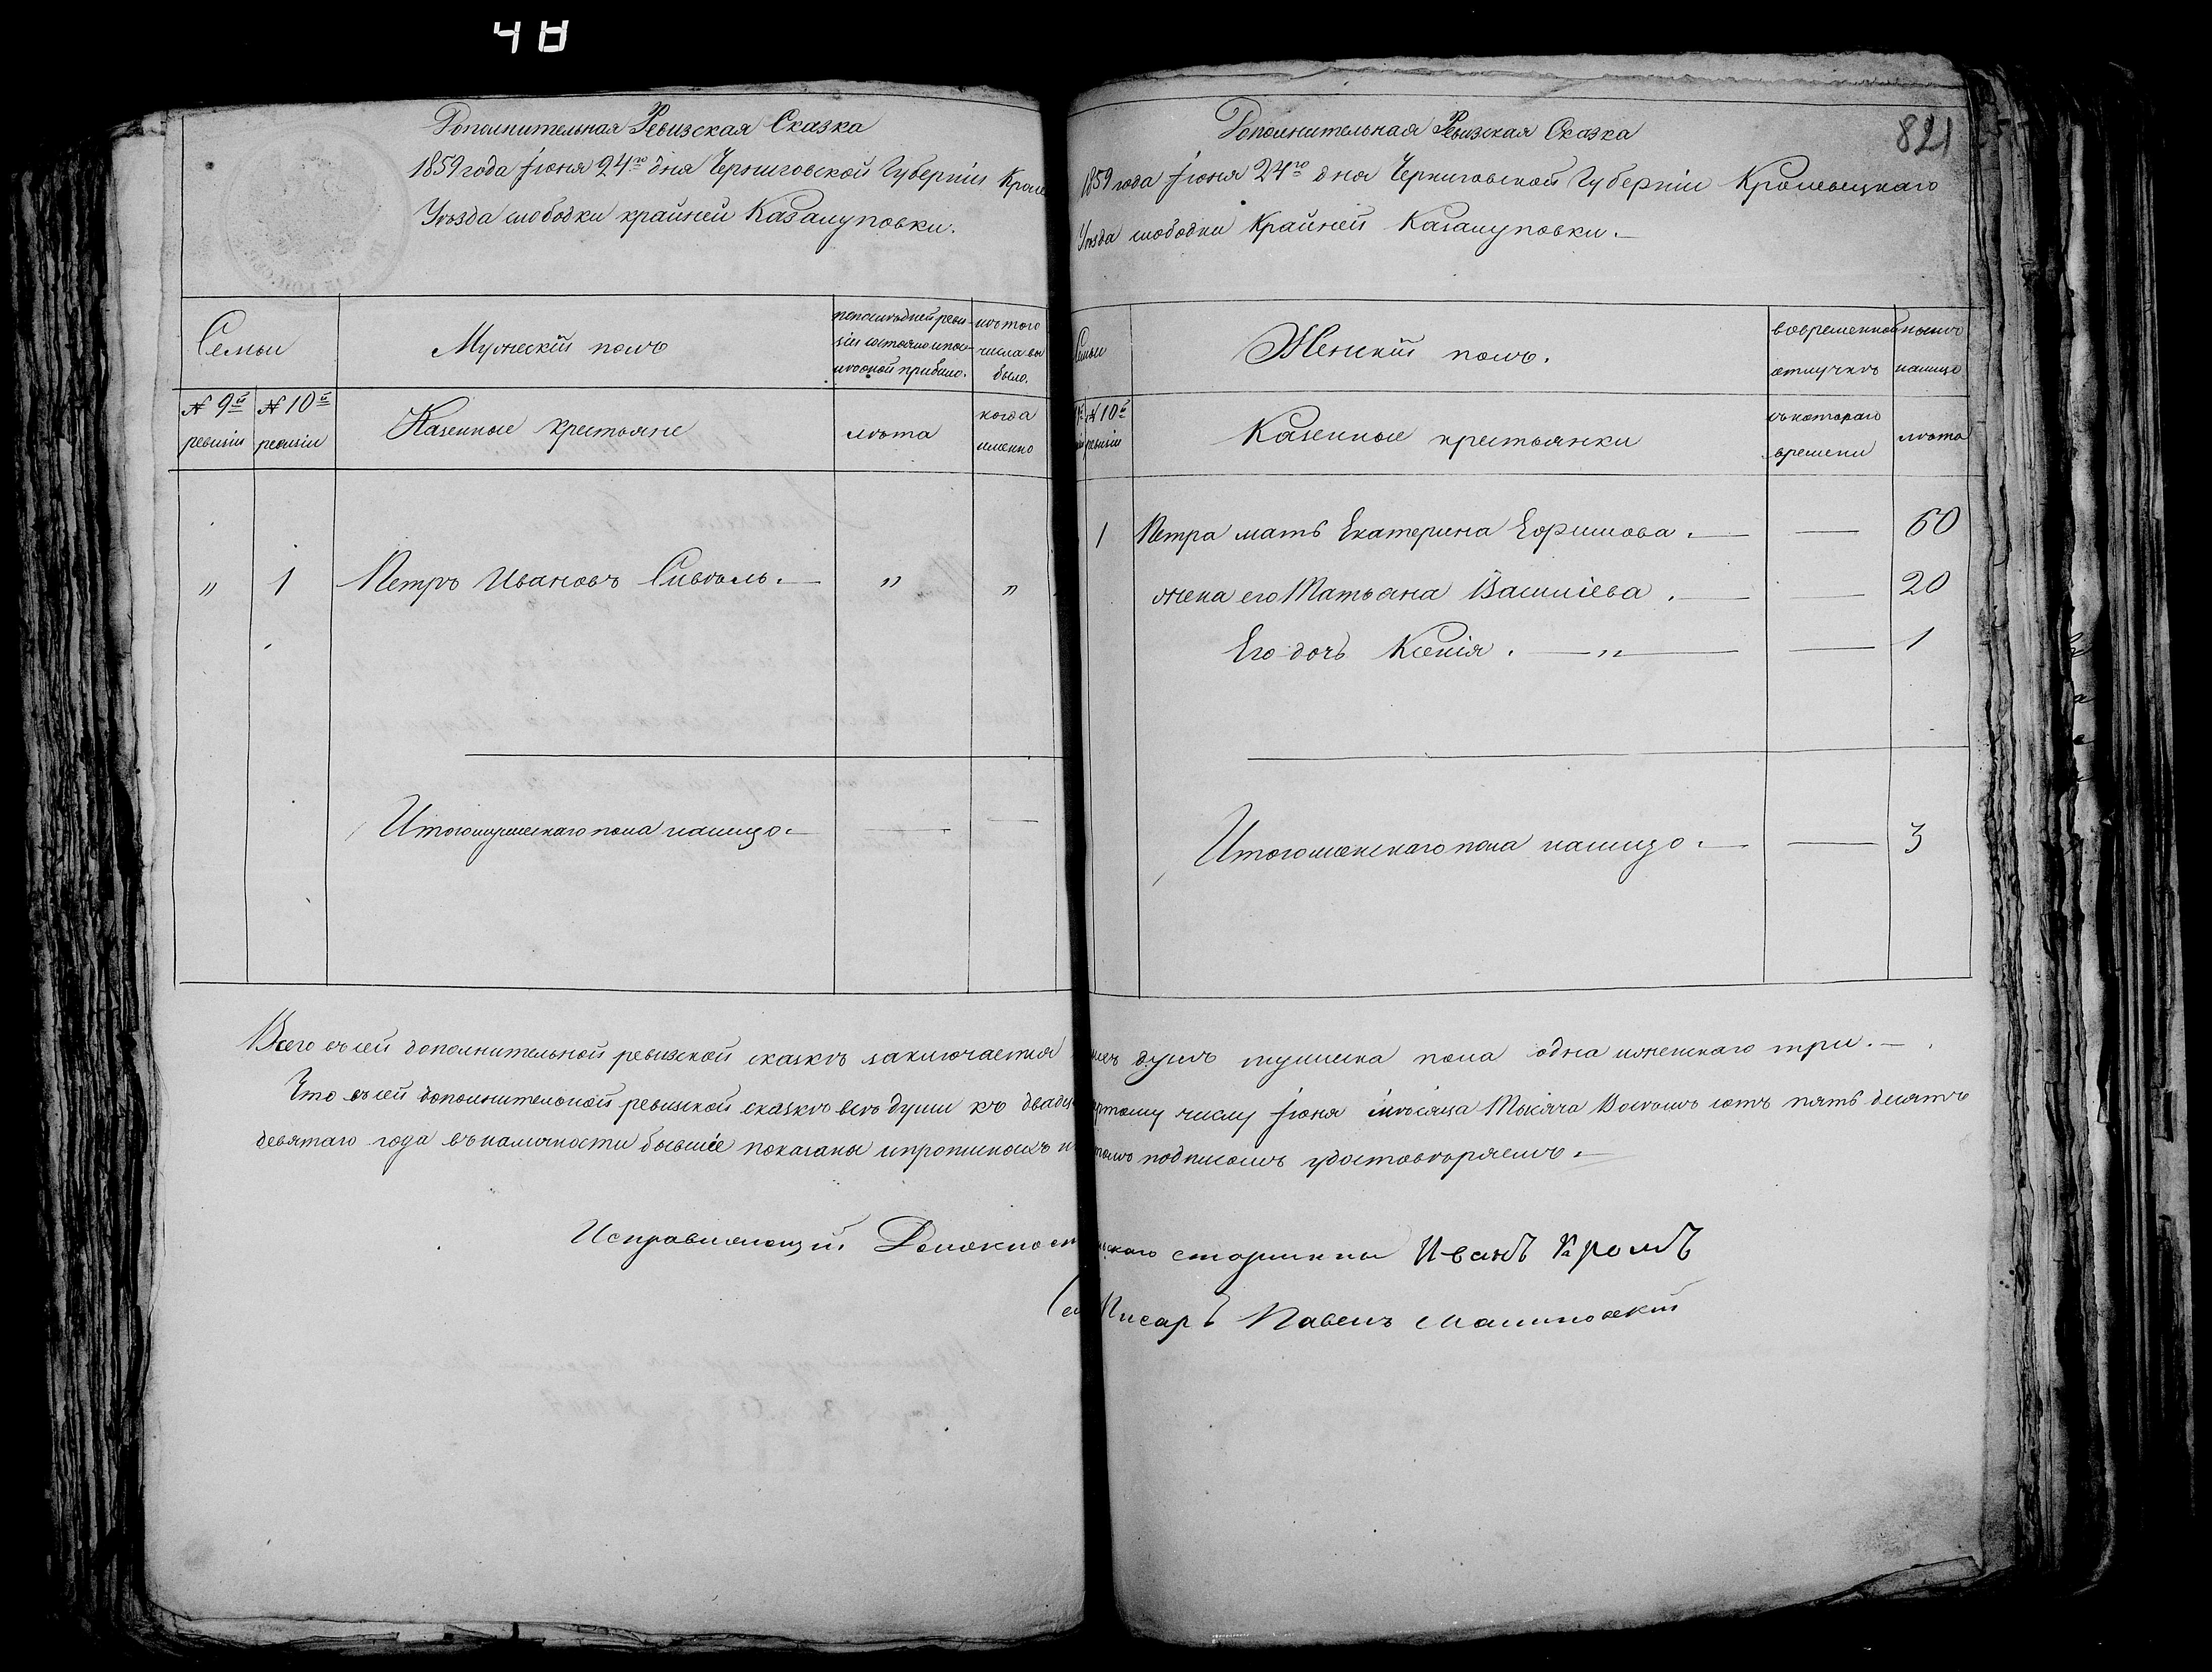 48
Дополнительная Ревизская Сказка
1859 года Іюня 24го дня Черниговской Губерніи Кроле
Уѣзда слободки крайней Казацуповки.
Семьи
Мужескій полъ
по последней реви-
зіи состояло и по-
слѣ оной прибыло.
изъ того
числа вы
было.
№ 9й ревизіи
№ 10й ревизіи
Казенные крестьяне
лѣта
когда
именно
„ 1 Петръ Ивановъ Сивволь. „ „
Итого мужескаго пола налицо.
821
Дополнительная Ревизская Сказка
1859 года Іюня 24го дня Черниговской Губерніи Кролевецкаго
Уѣзда слободки Крайней Казацуповки.
Семьи
Женскій полъ.
во временной
отлучкѣ
нынѣ
налицо
№ 10й
ревизіи
Казенные крестьянки
съ котораго
времени
лѣта
1 Петра мать Екатерина Ефимова. — 60
жена его Татьяна Василіева. — 20
Его дочь Ксенія. „ — 1
Итого женскаго пола налицо. — 3
Всего въ сей дополнительной ревизской сказкѣ заключается душъ мужеска пола одна и женскаго три.
Что въ сей дополнительной ревизской сказкѣ всѣ души къ двадц ертому числу Іюня мѣсяца Тысяча Восемь сотъ пять десятъ
девятаго года въ наличности бывшіе показаны и прописныхъ н томъ подписомъ удостовѣряемъ.
Исправляющій Должност ьскаго старшины Иванъ Кромъ
Писарь Павелъ Малиновскій